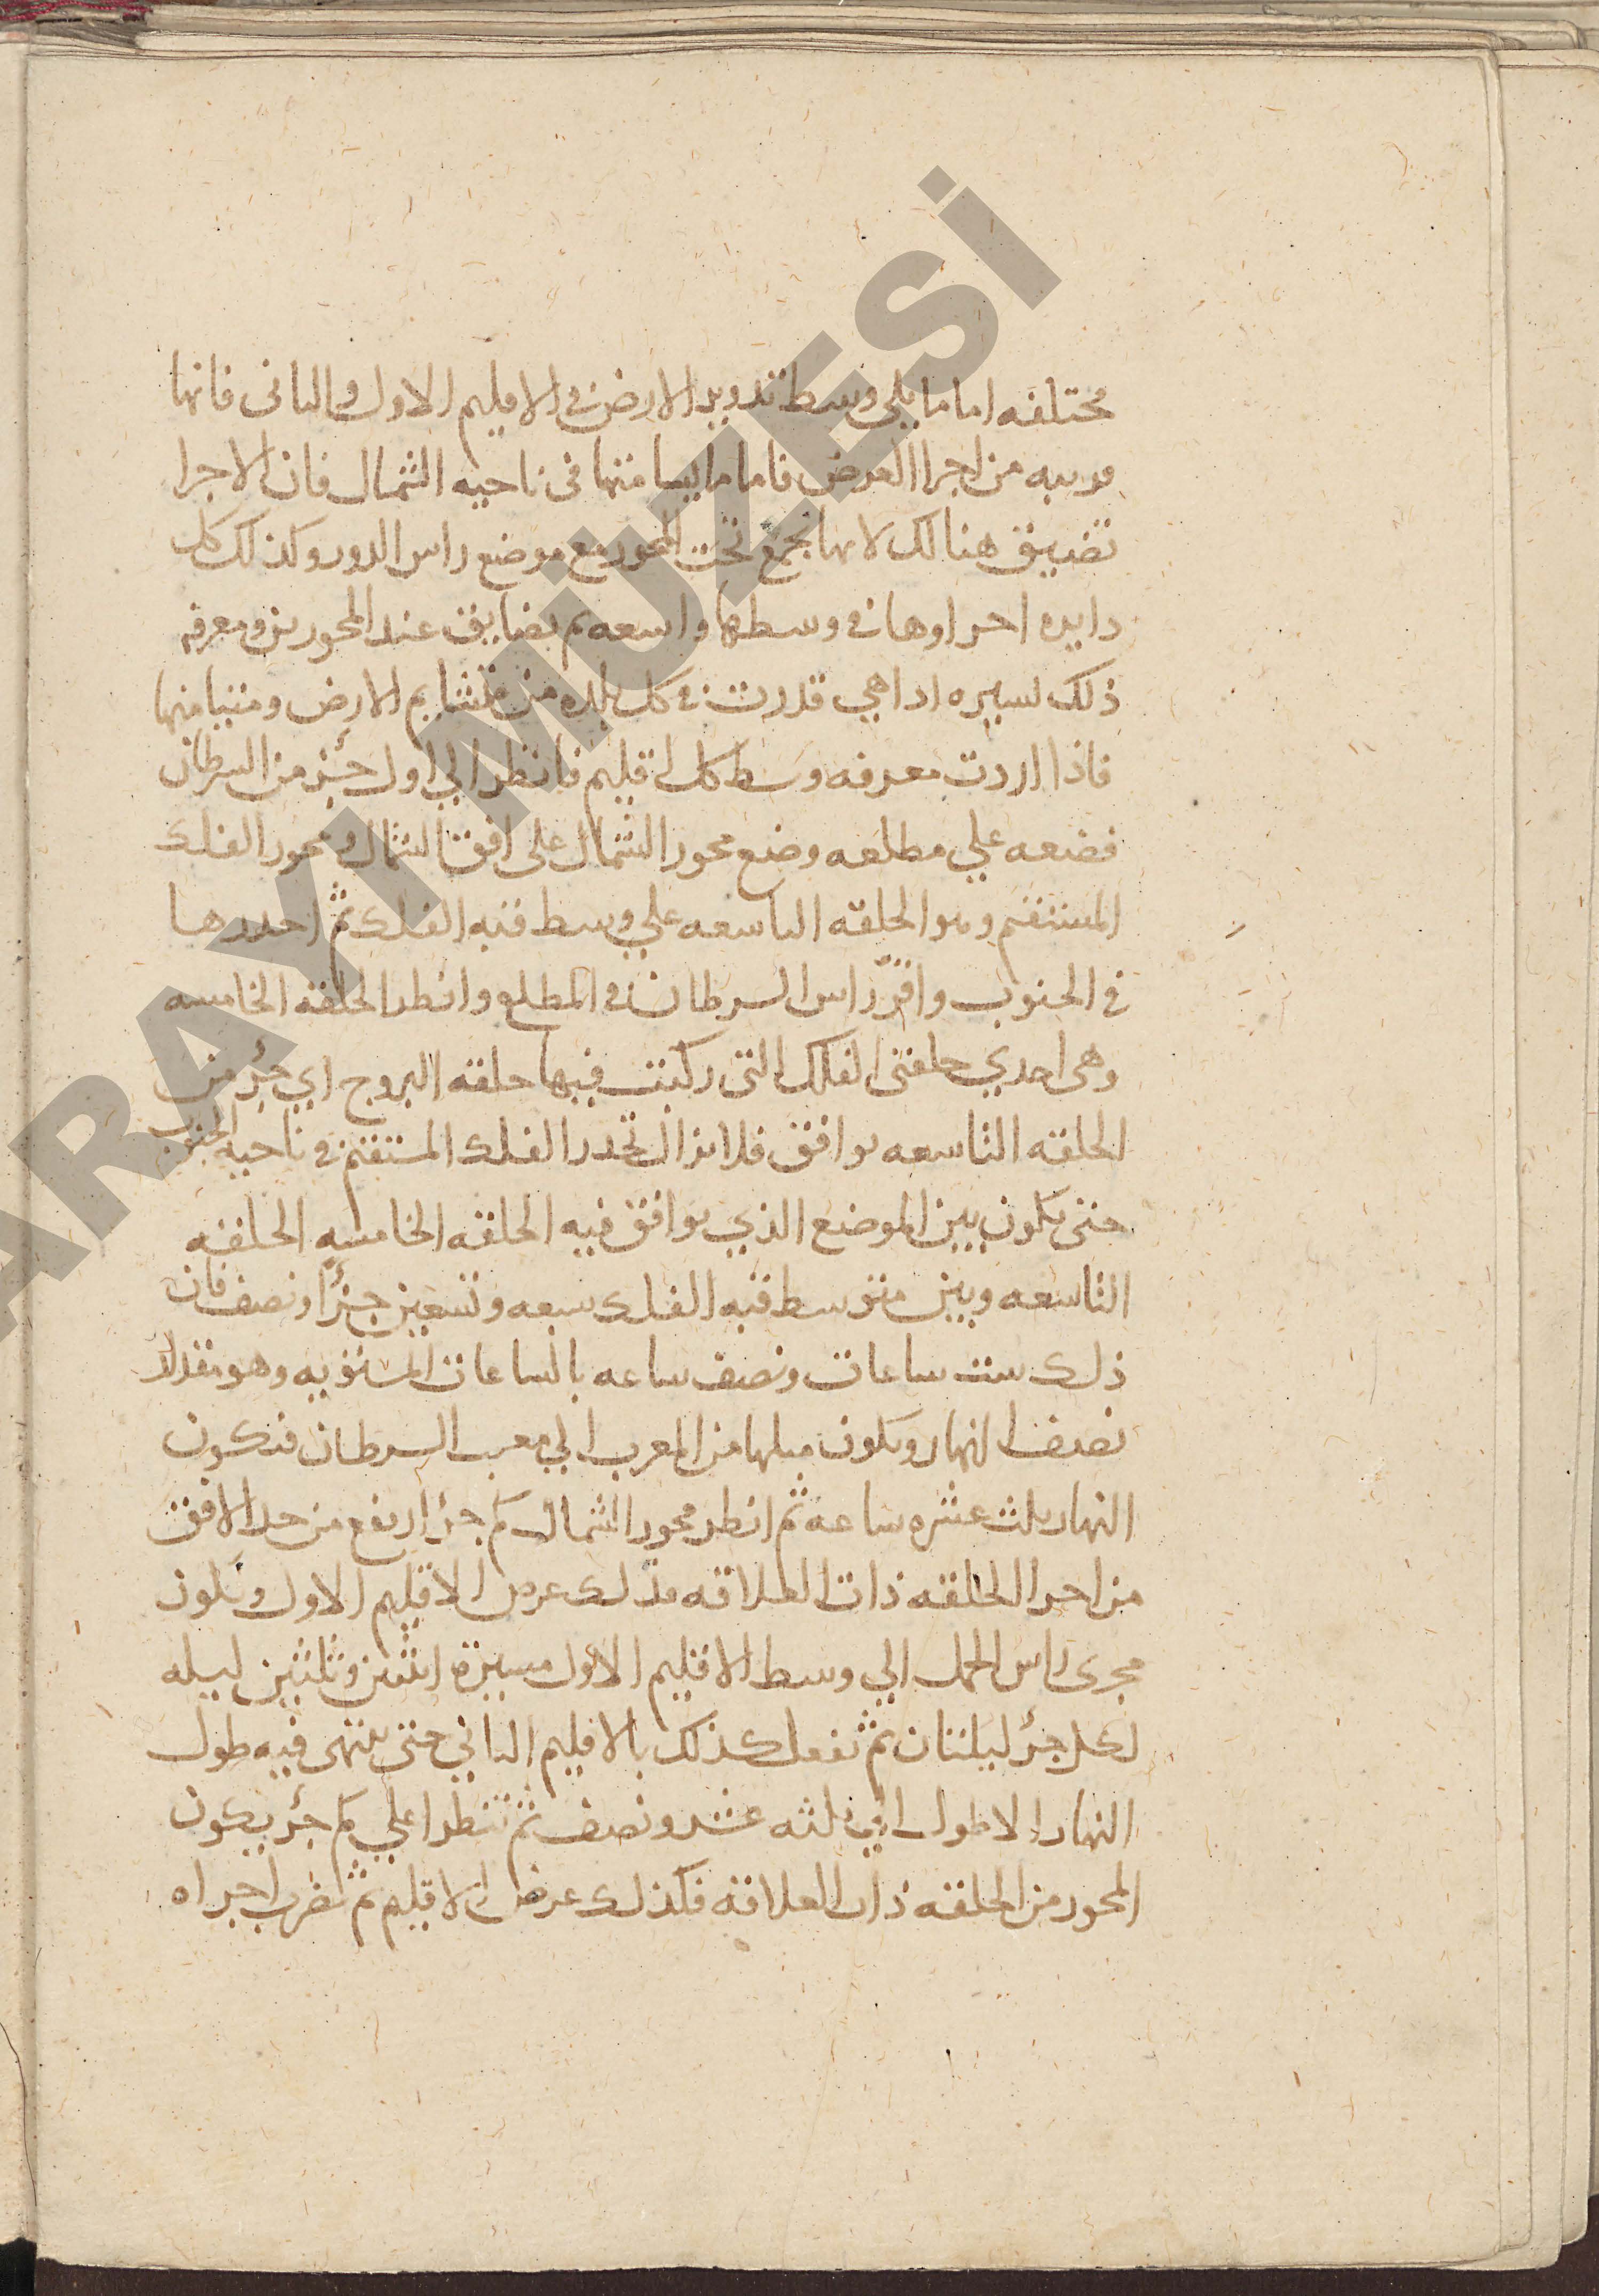 مختلفه اما ما يلي وسط تدوير الارض في الاقليم الاول والثاني فانها
قريبه من اجزا العرض فاما ما يسا منها في ناحيه الشمال فان الاجزا
تضيق هنالك لانها تجمع تحت المحور مع موضع راس الدور وكذلك كل
دايره اجزاوها في وسطها واسعه ثم يضايق عند المحورين ومعرفه
ذلك لسيره اذا هي قدرت في كل بلده من الارض ومتيامنها
فاذا اردت معرفه وسط كل اقليم فانظر الي اول جز من السرطان
فضعه علي مطلعه وضع محور الشمال على افق الشمال ومحور الفلك
المستقيم وهو الحلقه التاسعه علي وسط قبه الفلك ثم احدرها
في الجنوب واقر راس السرطان في المطلع وانظر الحلقه الخامسه
وهي احدي حلقتي الفلك التي ركبت فيها حلقه البروج اي جز من
الحلقه التاسعه توافق فلا يزال تحدر الفلك المستقيم في ناحيه الجنوب
حتى يكون بين الموضع الذي توافق فيه الحلقه الخامسه الحلقه
التاسعه وبين متوسط قبه الفلك سبعه وتسعين جزا ونصف فان
ذلك ست ساعات ونصف ساعه بالساعات المستويه وهو مقدار
نصف النهار ويكون ميلها من المغرب الي مغرب السرطان فيكون
النهار ثلث عشره ساعه ثم انظر محور الشمال كم جز ارتفع من حد الافق
من اجزا الحلقه ذات العلاقه فذلك عرض الاقليم الاول ويكون
مجرى راس الحمل الي وسط الاقليم الاول مسيرة اثنين وثلثين ليله
لكل جز ليلتان ثم تفعل كذلك بالاقليم الثاني حتى ينتهي فيه طول
النهار الاطول الي ثلثه عشر ونصف ثم تنظر اعلي كم جز يكون
المحور من الحلقه ذات العلاقه فكذلك عرض الاقليم ثم تضرب اجزاه
ARAYI MÜZESİ